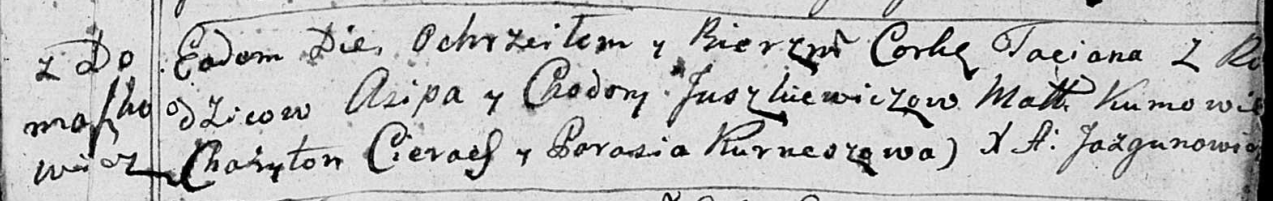 z Do
maszko
wicz
Eadem Die, Ochrzciłem y Bierzm Corkę Taciana z Ro
dzicow Asipa y Chodory Juszkiewiczow Małż Kumowie
Charyton Cierach y Parasia Kurneszowa) X A: Jazgunowicz